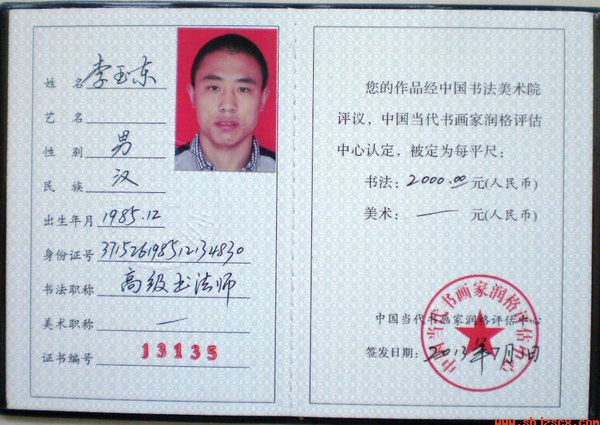 姓 名 李玉东
艺 名
性 别 男
民 族 汉
出生年月 1985.12
身份证号 371526198512134830
书法职称 高级书法师
美术职称 一
证书编号 13135
您的作品经中国书法美术院
评议，中国当代书画家润格评估
中心认定，被定为每平尺：
书法：2000.00 元(人民币)
美术： — 元(人民币)
中国当代书画家润格评估中心
中国当代书画家润格评估中心
签发日期：2013年7月1日